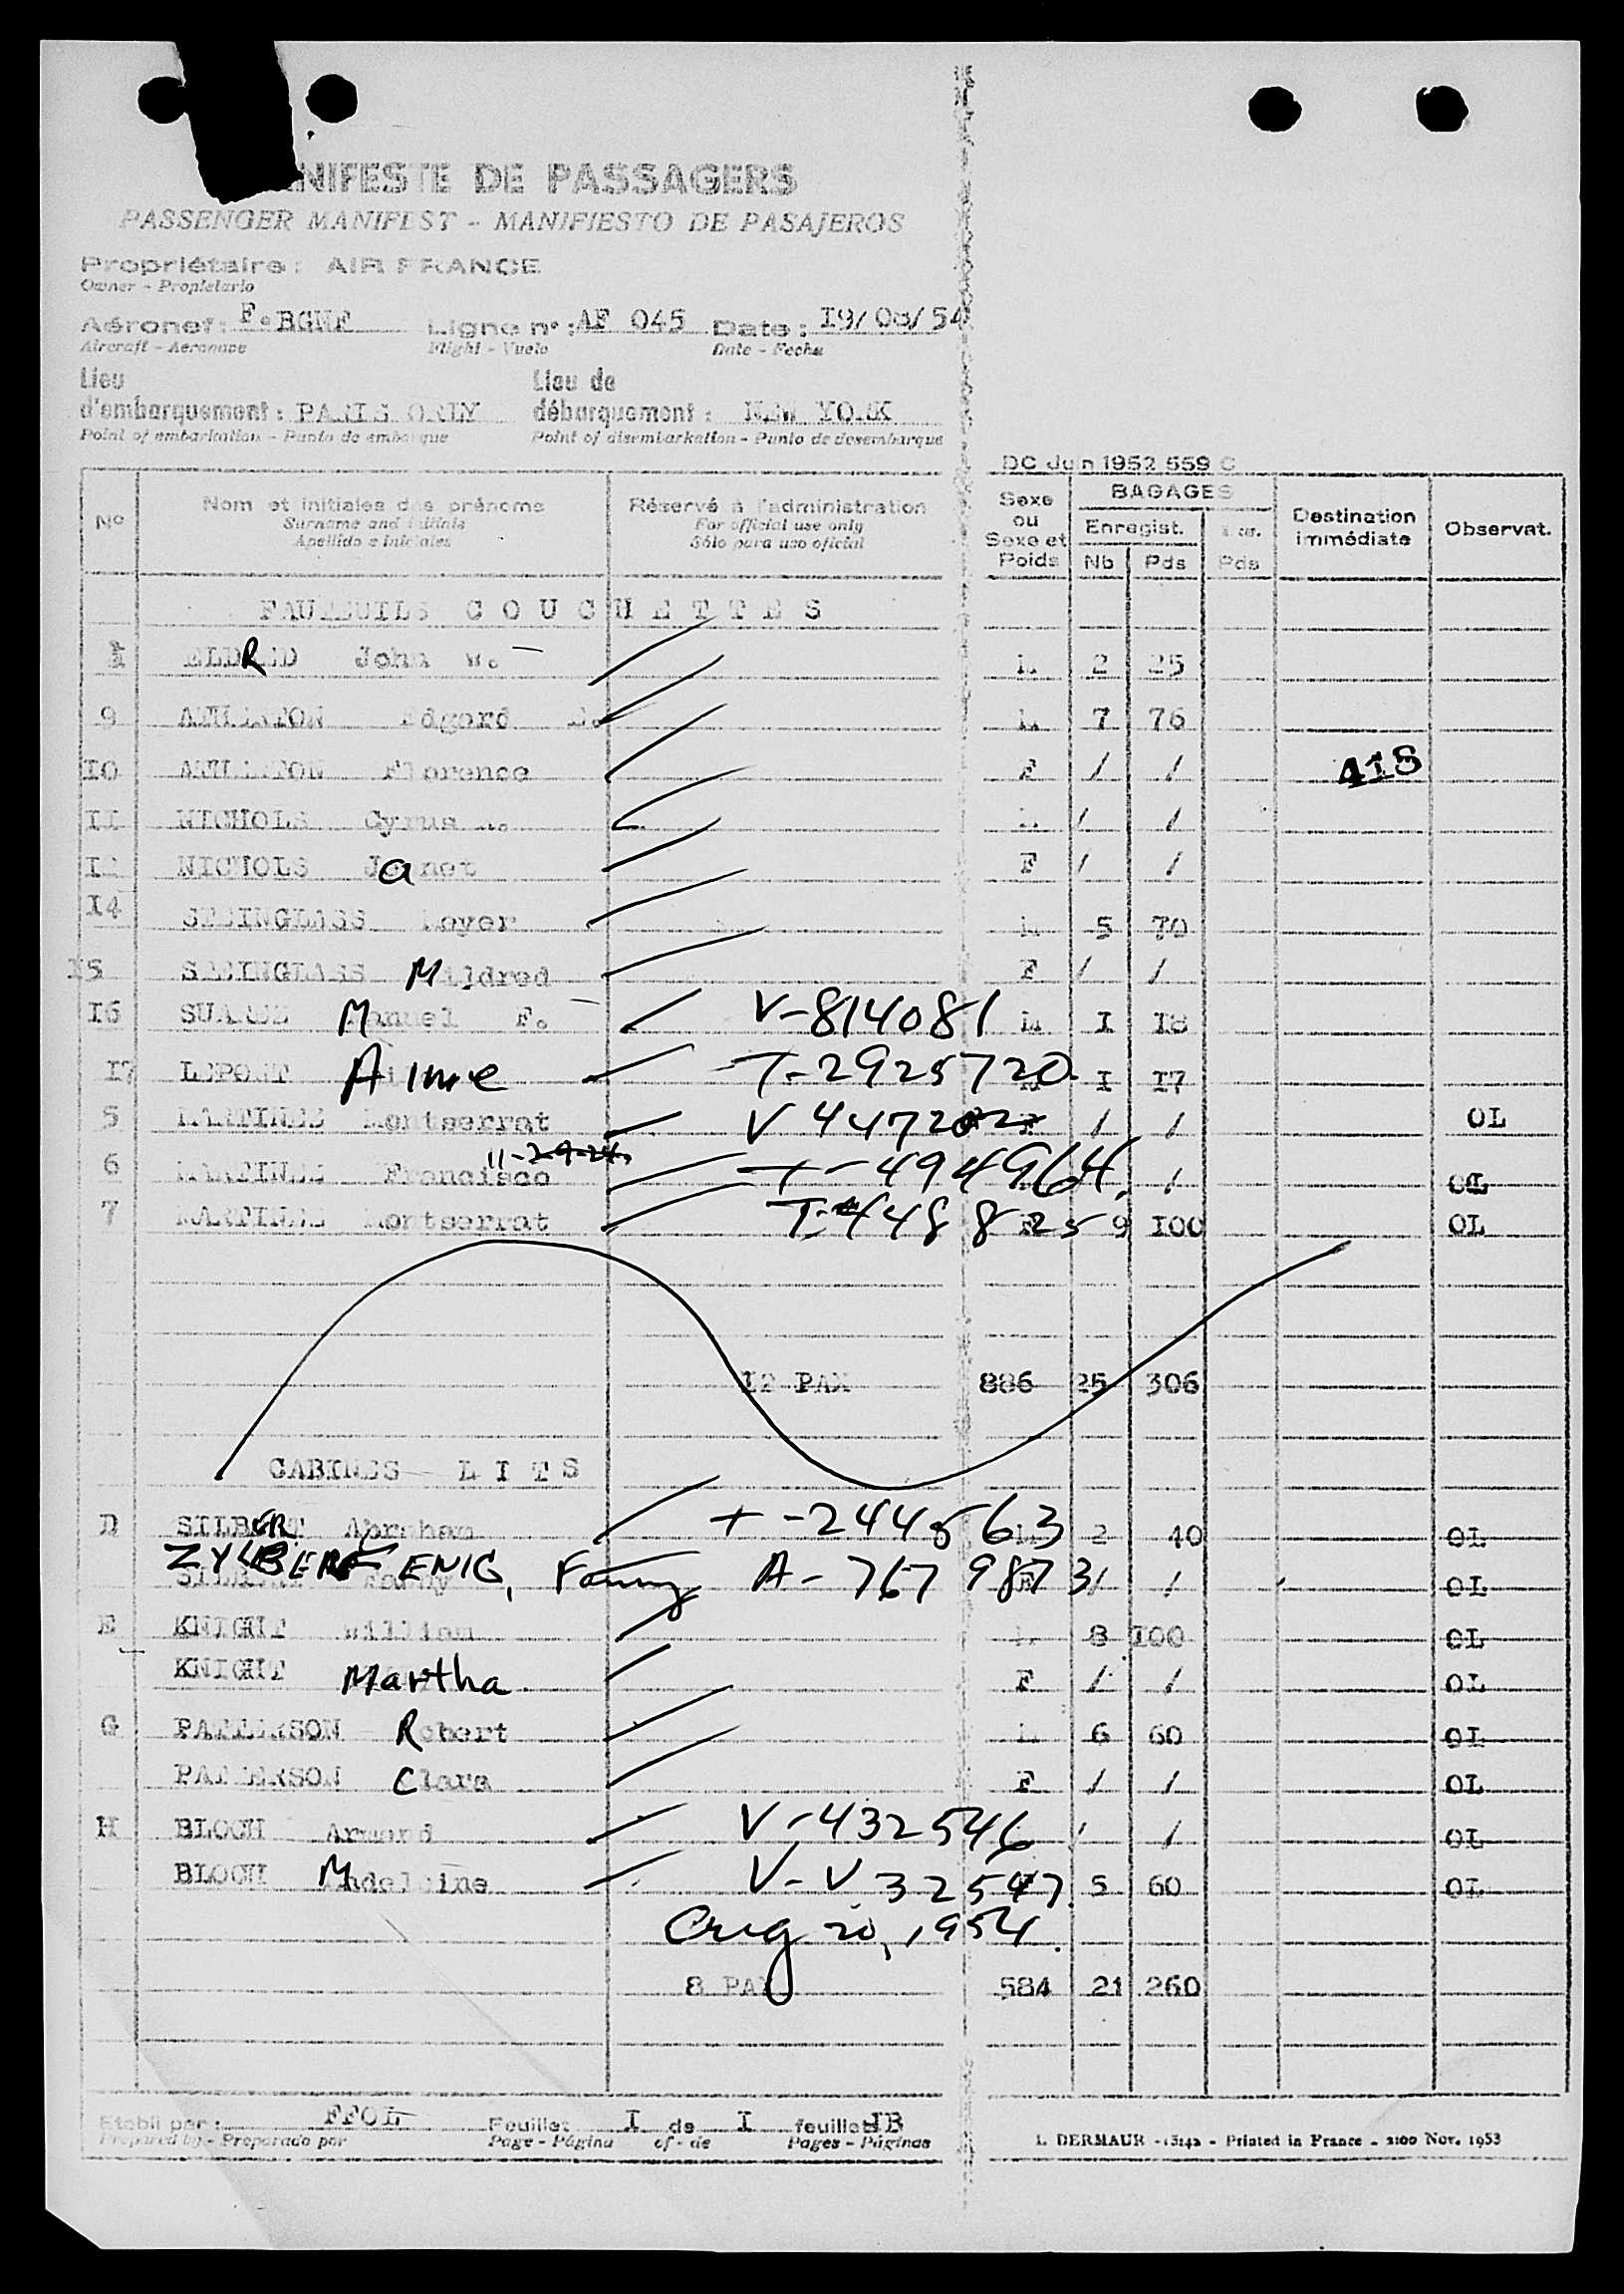 MANIFESTE DE PASSAGERS
PASSENGER MANIFEST - MANIFIESTO DE PASAJEROS
Propriétaire : AIR FRANCE
Owner - Propietario
Aéronef : F-BGNF Ligne n° : AF 045 Date : I9/08/54
Aircraft - Aeronave Flight - Vuelo Date - Fecha
Lieu Lieu de
d'embarquement : PARIS ORLY débarquement : NEW YORK
Point of embarkation - Punto de embarque Point of disembarkation - Punto de desembarque
DC Juin 1952 559 C
N° Nom et initiales des prénoms Réservé à l'administration Sexe ou Sexe et Poids BAGAGES Destination immédiate Observat.
Surname and initials For official use only Enregist.
Apellido e iniciales Sólo para uso oficial Nb Pds Pds
FAUTEUILS C O U C H E T T E S
ELDRED John W. 2 25
9 Edgard 7 76
I0 Florence F / / 4IS
II NICHOLS Cyrus / /
I2 NICHOLS Janet F / /
I4 STEINGLASS Meyer 5 70
I5 STEINGLASS Mildred F / /
I6 SUAREZ Manuel F. V-814081 M I I8
I7 LEPONT Aime T-2925720 I I7
5 MARTINEZ Montserrat V 447202 / / OL
11-29-24
6 MARTINEZ Francisco T-494964 / OL
7 MARTINEZ Montserrat T-448825 9 I00 OL
I2 PAX 886 25 306
CABINES L I T S
D SILBERT Abraham T-244563 2 40 OL
ZYLBERSZENIG, Fanny A-7679873 / / OL
SILBERT Fanny
E KNIGHT William 8 I00 OL
KNIGHT Martha F / / OL
G PATTERSON Robert 6 60 OL
PATTERSON Clara F / / OL
H BLOCH Armand V-432546 / / OL
BLOCH Madeleine V-V32547 5 60 OL
Aug 20, 1954
8 PAX 584 21 260
Etabli par : FFOL Feuillet I de I feuillets JB
Prepared by - Preparado por Page - Página of - de Pages - Páginas
L. DERMAUR - 15142 - Printed in France - 2100 Nov. 1953